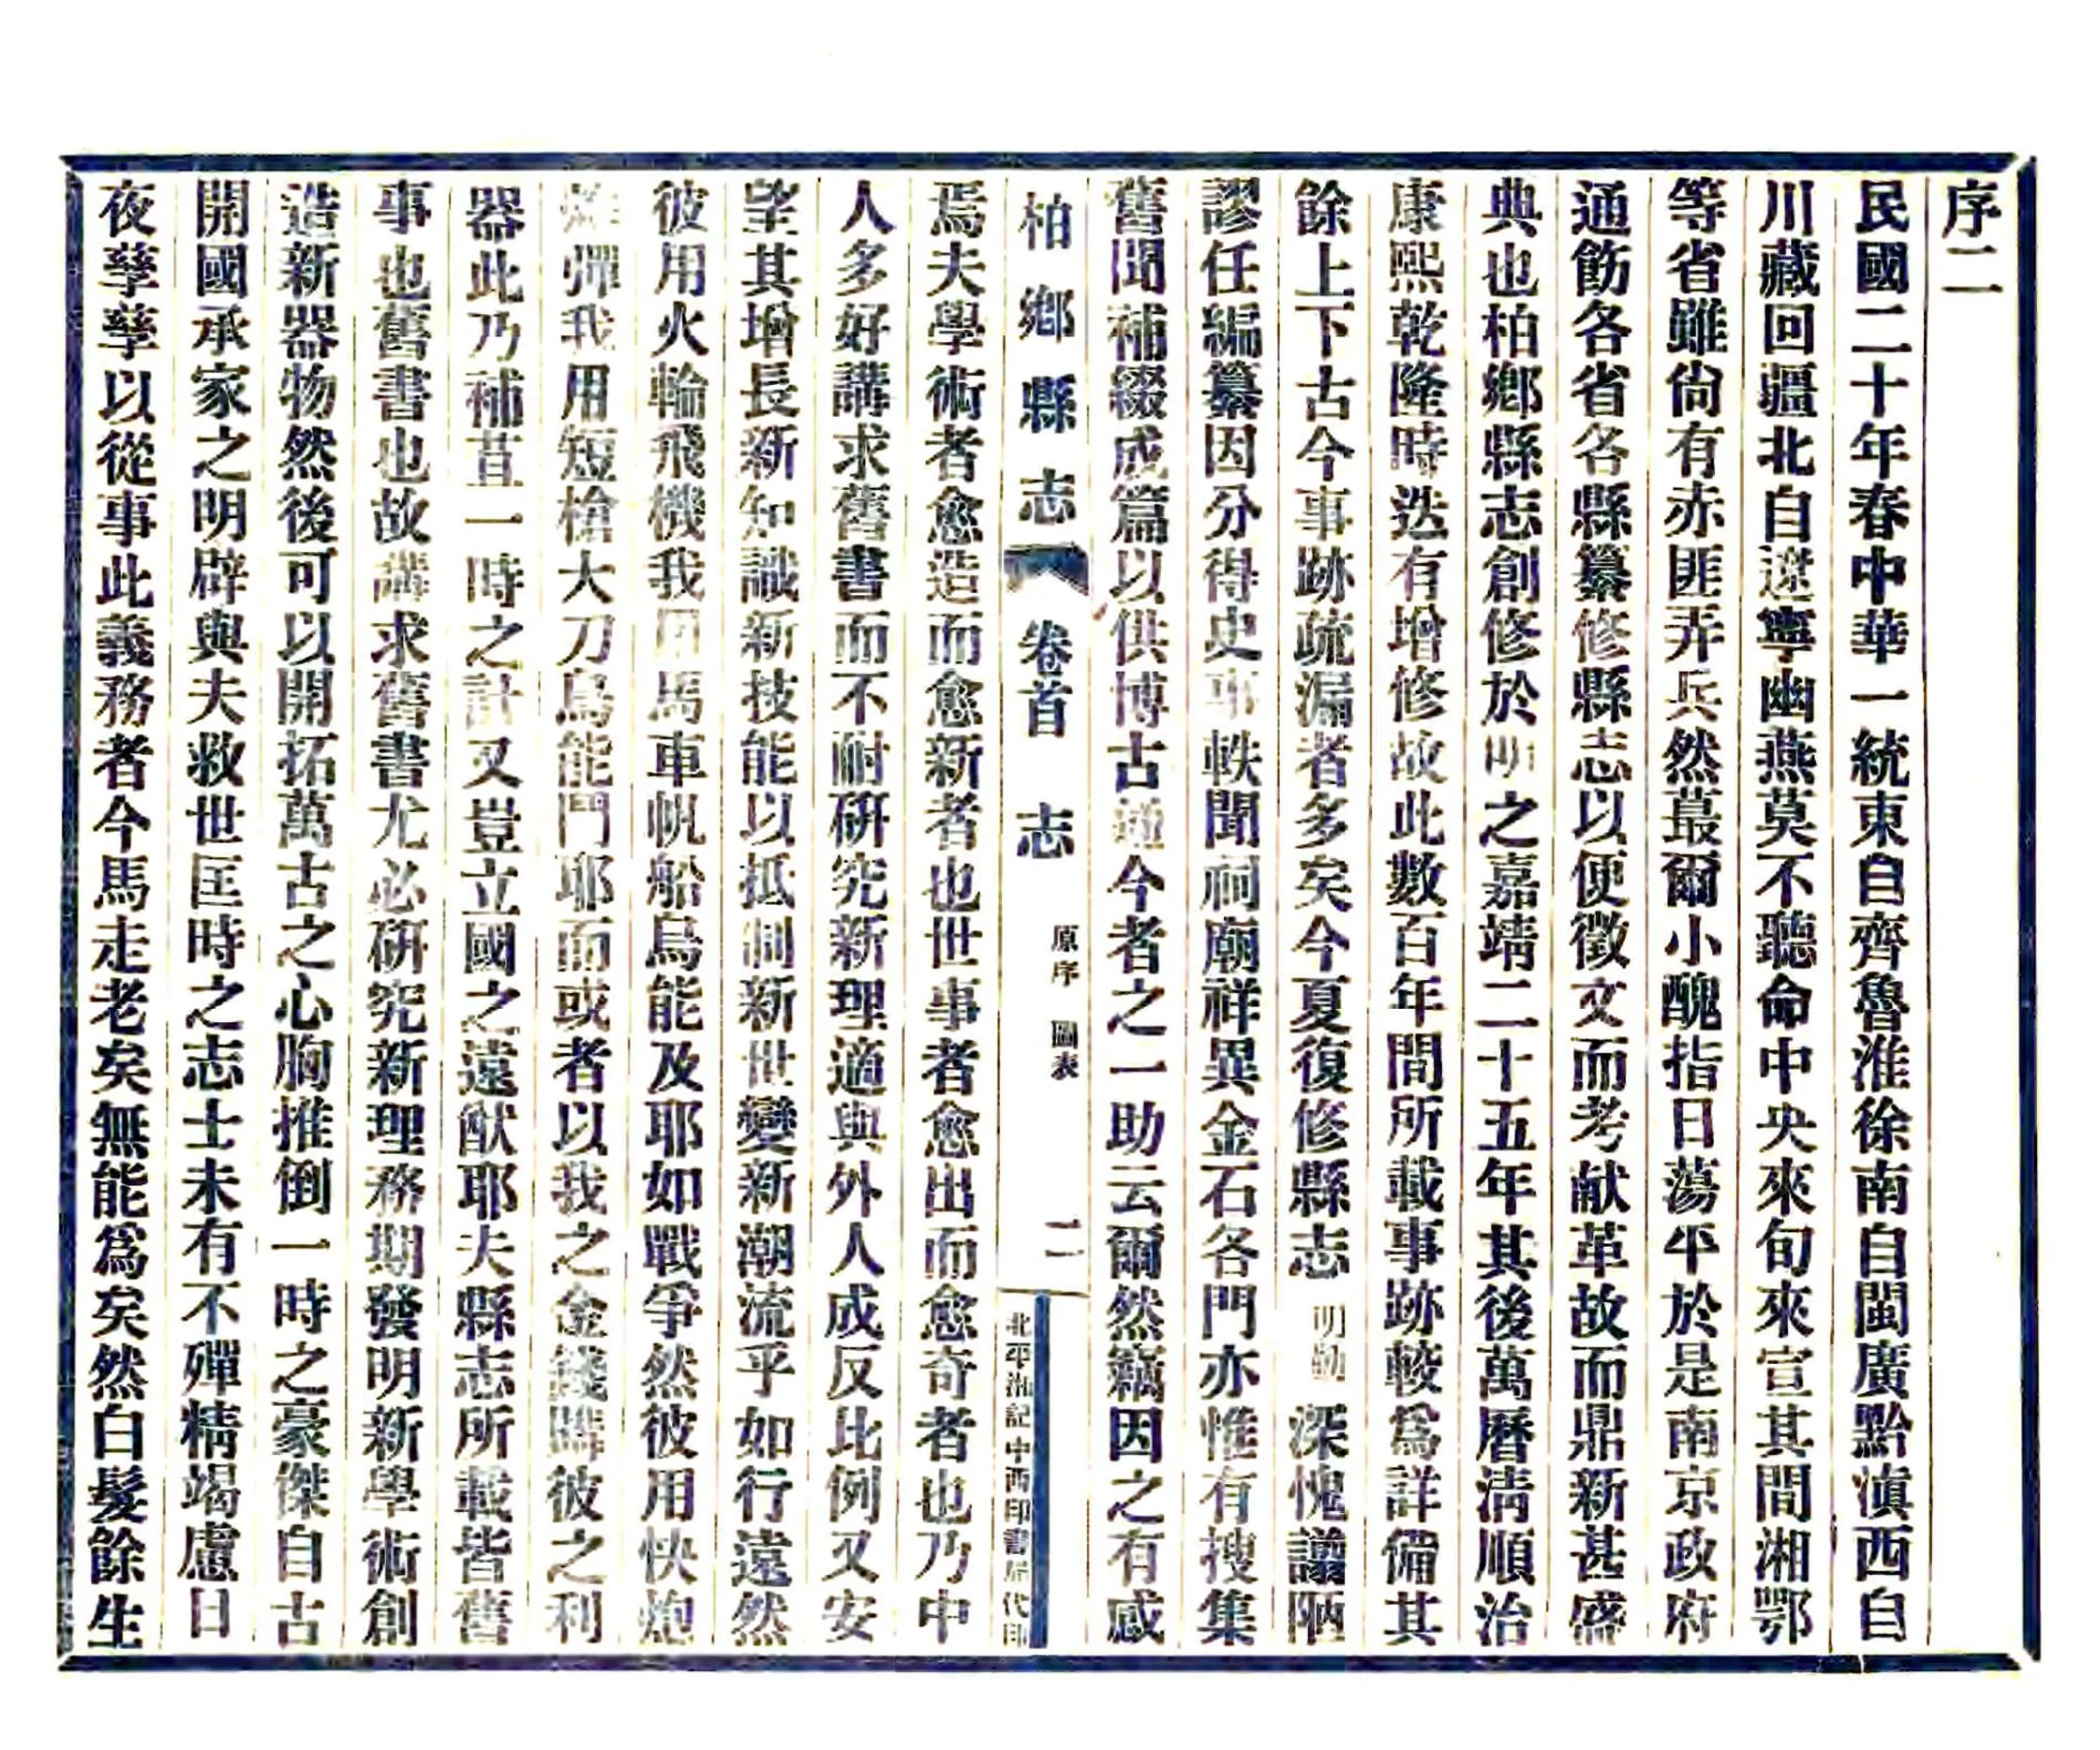 序二
民國二十年春中華一統東自齊魯淮徐南自閩廣黔滇西自
川藏回疆北自遼寧幽燕莫不聽命中央來旬來宣其間湘鄂
等省雖尙有赤匪弄兵然蕞爾小醜指日蕩平於是南京政府
通飭各省各縣纂修縣志以便徵文而考献革故而鼎新甚盛
典也柏鄉縣志創修於明之嘉靖二十五年其後萬曆淸順治
康熙乾隆時迭有增修故此數百年間所載事跡較爲詳備其
餘上下古今事跡疏漏者多矣今夏復修縣志明勳深愧譾陋
謬任編纂因分得史事軼聞祠廟祥異金石各門亦惟有搜集
舊聞補綴成篇以供博古通今者之一助云爾然竊因之有感
柏鄉縣志 卷首 志 原序 圖表 二 北平湘記中西印書局代印
焉夫學術者愈造而愈新者也世事者愈出而愈奇者也乃中
人多好講求舊書而不耐研究新理適與外人成反比例又安
望其增長新知識新技能以抵制新世變新潮流乎如行遠然
彼用火輪飛機我用馬車帆船烏能及耶如戰爭然彼用快炮
炸彈我用短槍大刀烏能鬥耶而或者以我之金錢購彼之利
器此乃補苴一時之計又豈立國之遠猷耶夫縣志所載皆舊
事也舊書也故講求舊書尤必研究新理務期發明新學術創
造新器物然後可以開拓萬古之心胸推倒一時之豪傑自古
開國承家之明辟與夫救世匡時之志士未有不殫精竭慮日
夜孳孳以從事此義務者今馬走老矣無能爲矣然白髮餘生